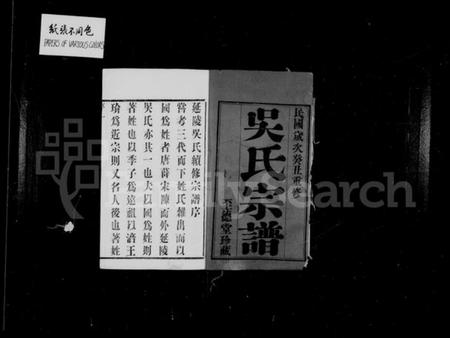 紙張不同色
PAPERS OF VARIOUS COLORS
民國歲次癸丑重修
吳氏宗譜
至德堂珍藏
延陵吳氏續修宗譜序
嘗考三代而下姓氏雜出而以
國爲姓者唐薛宋陳而外延陵
吳氏亦其一也夫以國爲姓則
著姓也以季子爲遠祖以涪王
璘爲近宗則又名人後也著姓
FamilySearch